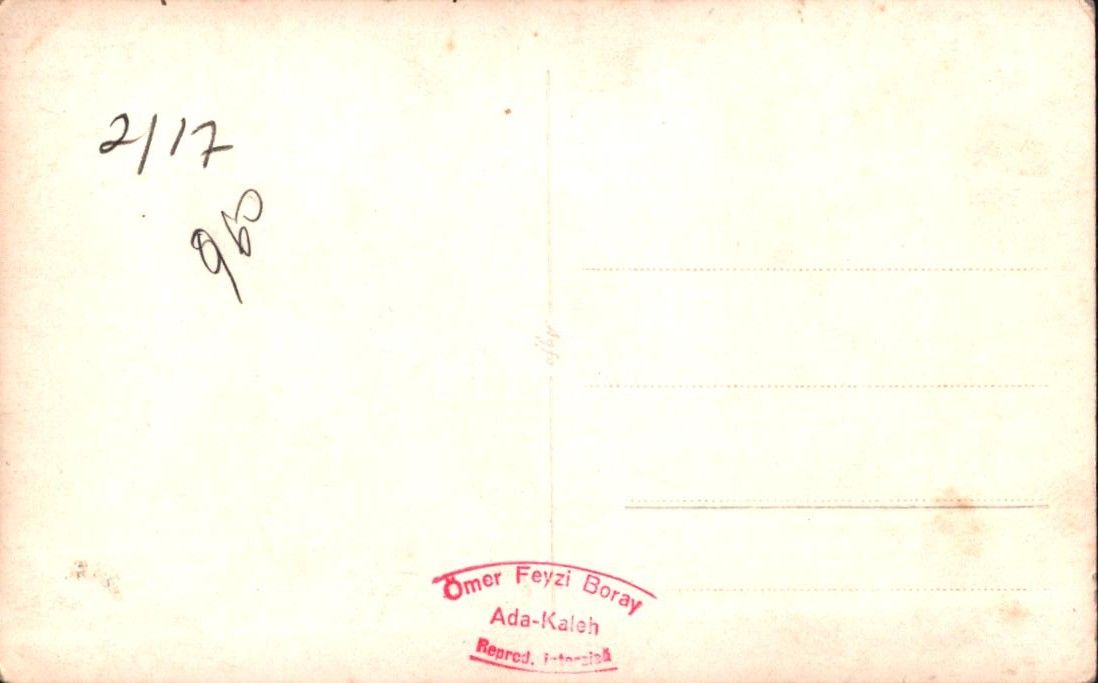 2/17
960
Ömer Feyzi Boray
Ada-Kaleh
Reprod. interzisă